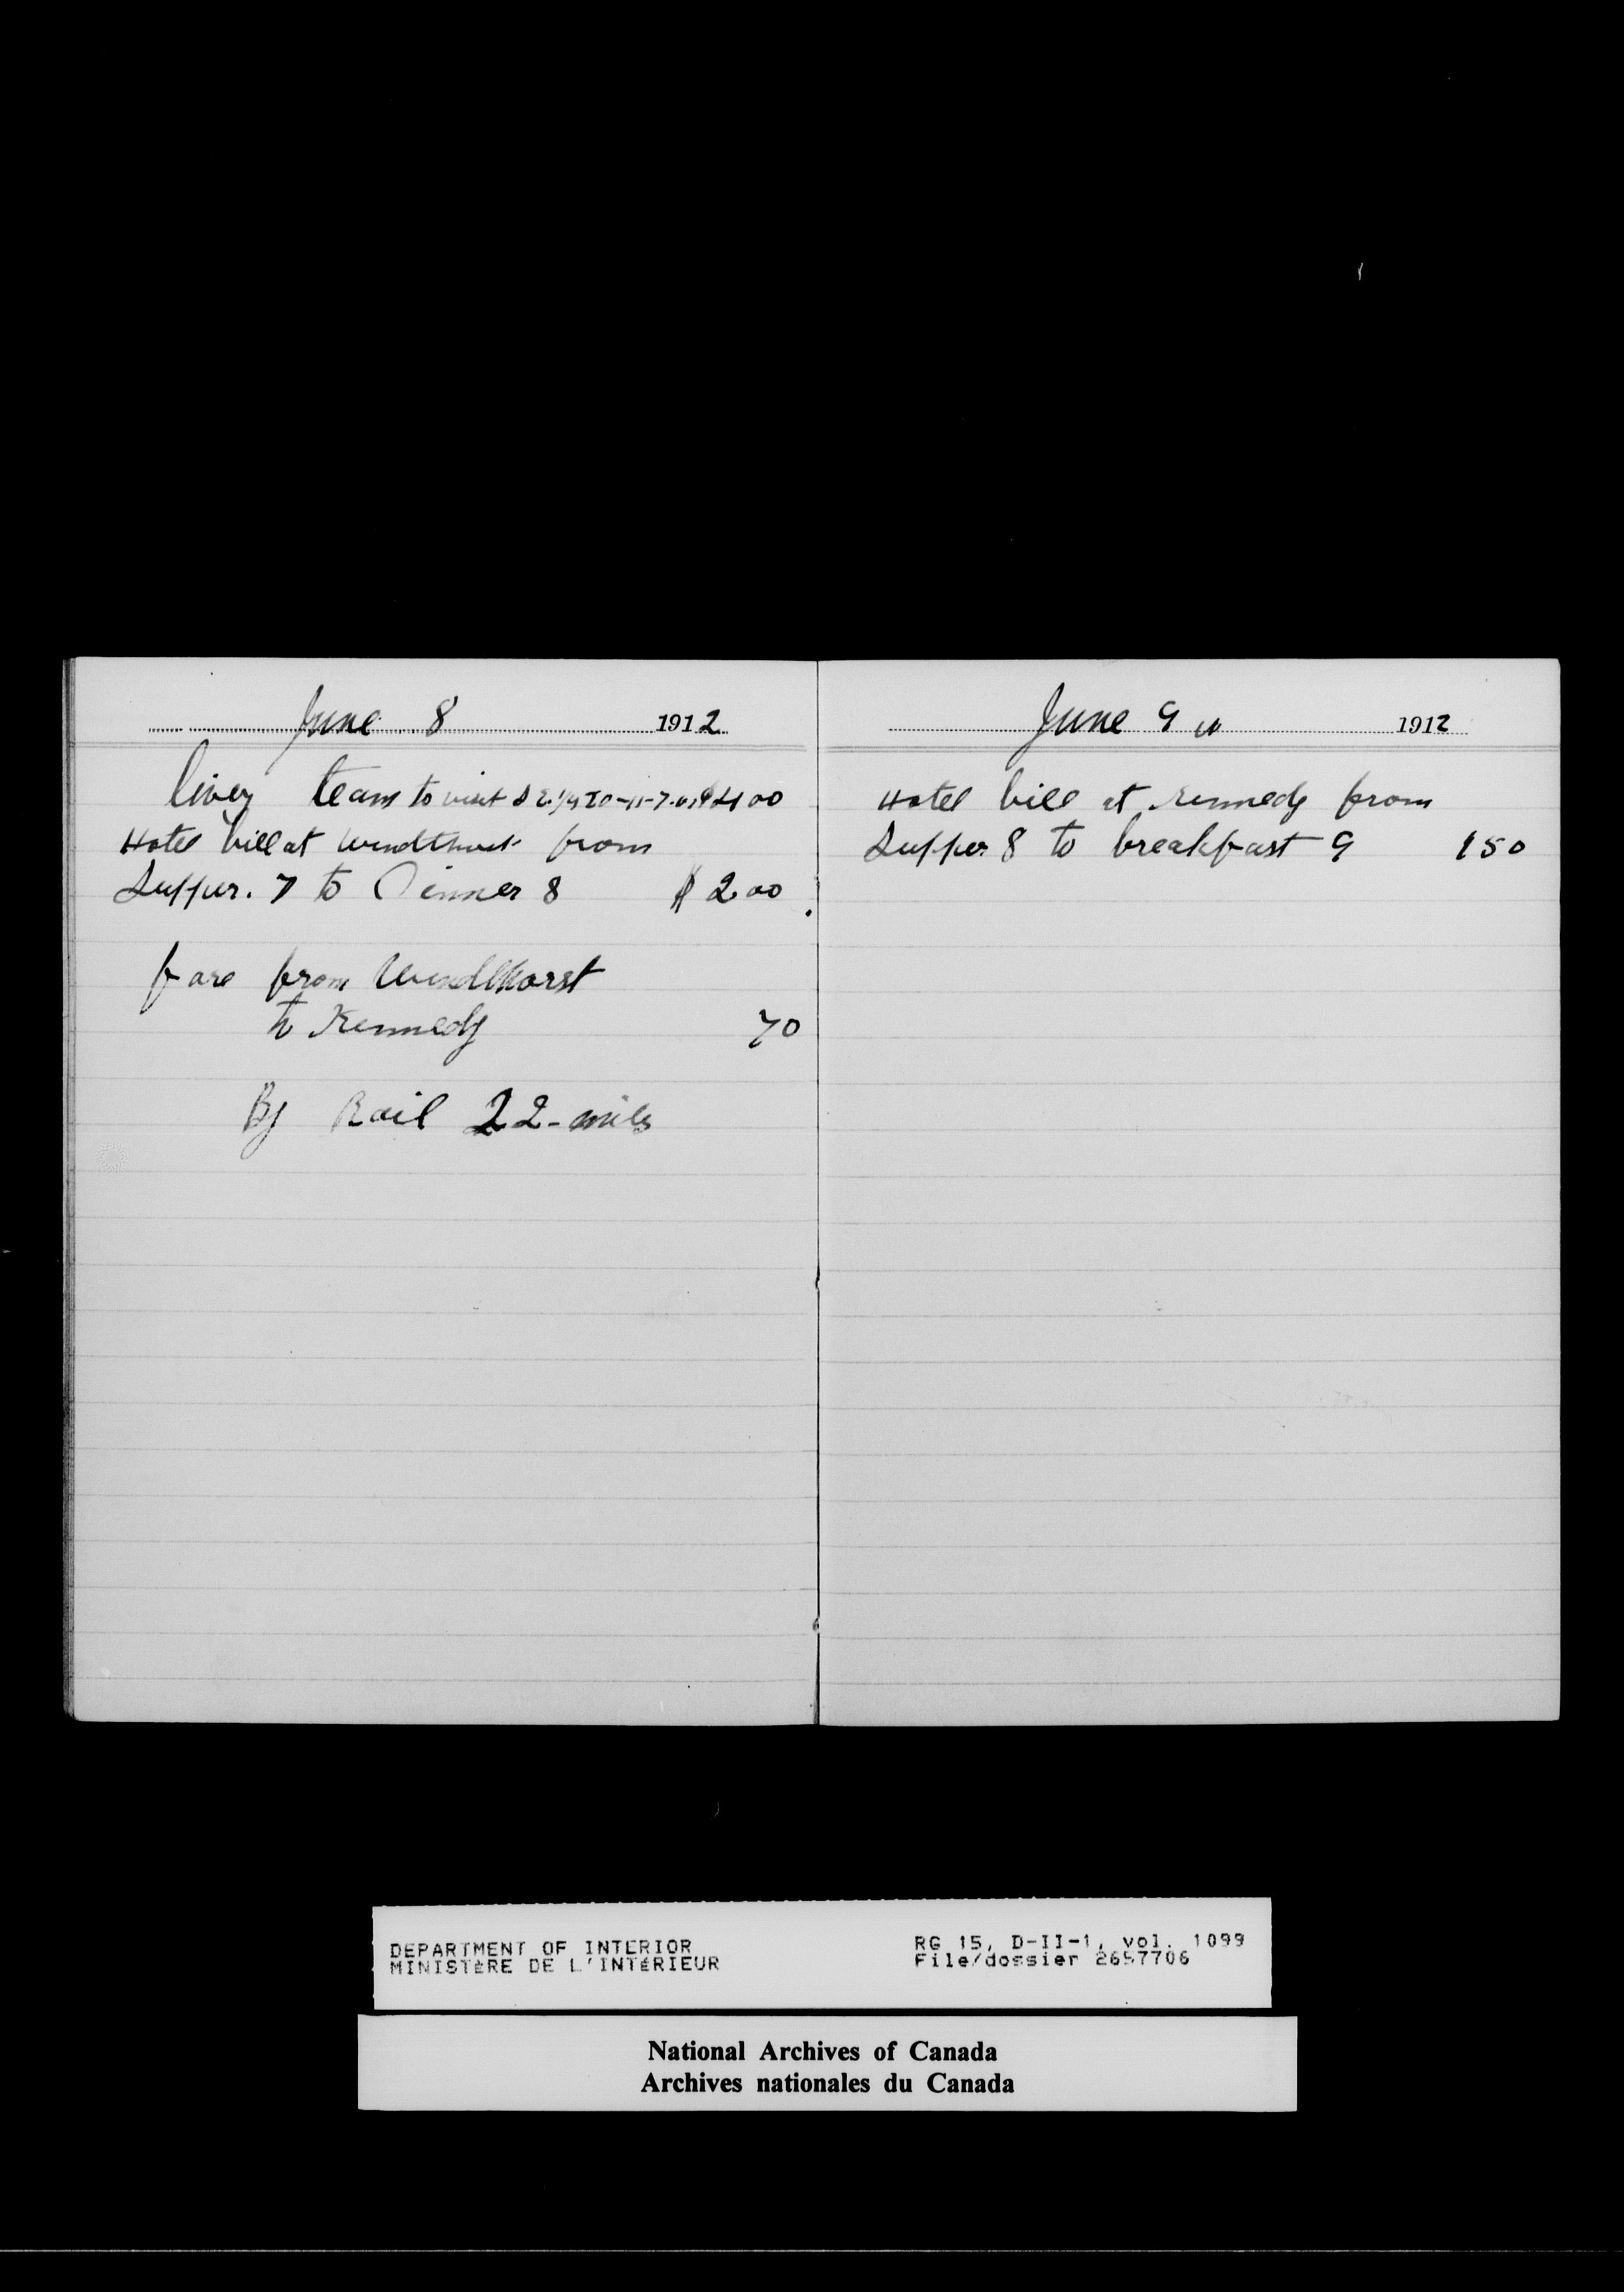 June 8 1912
livery team to visit S E 1/4 20-11-7. $4 00
Hotel bill at Windthorst from
Supper. 7 to Dinner 8 $ 2 00
fare from Windthorst
to Kennedy 70
By Rail 22-miles
June 9 1912
Hotel bill at Kennedy from
Supper 8 to breakfast 9 1 50
DEPARTMENT OF INTERIOR
MINISTÈRE DE L'INTÉRIEUR
RG 15, D-II-1, vol. 1099
File/dossier 2657706
National Archives of Canada
Archives nationales du Canada